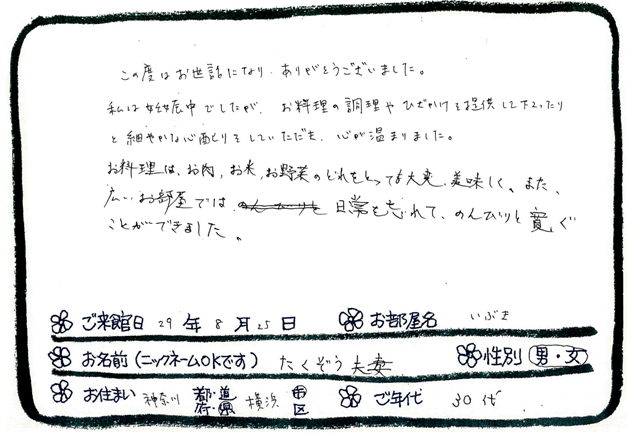 この度はお世話になり、ありがとうございました。
私は妊娠中でしたが、お料理の調理やひざかけを提供して下さったり
と細やかな心配りをしていただき、心が温まりました。
お料理は、お肉、お米、お野菜のどれをとっても大変、美味しく、また、
広いお部屋では、のんびりと 日常を忘れて、のんびりと寛ぐ
ことができました。
ご来館日 29年 8月 25日 お部屋名 いぶき
お名前(ニックネームOKです) たくぞう夫妻 性別 男・女
お住まい 神奈川 都・道 府・県 横浜 市 区 ご年代 30代